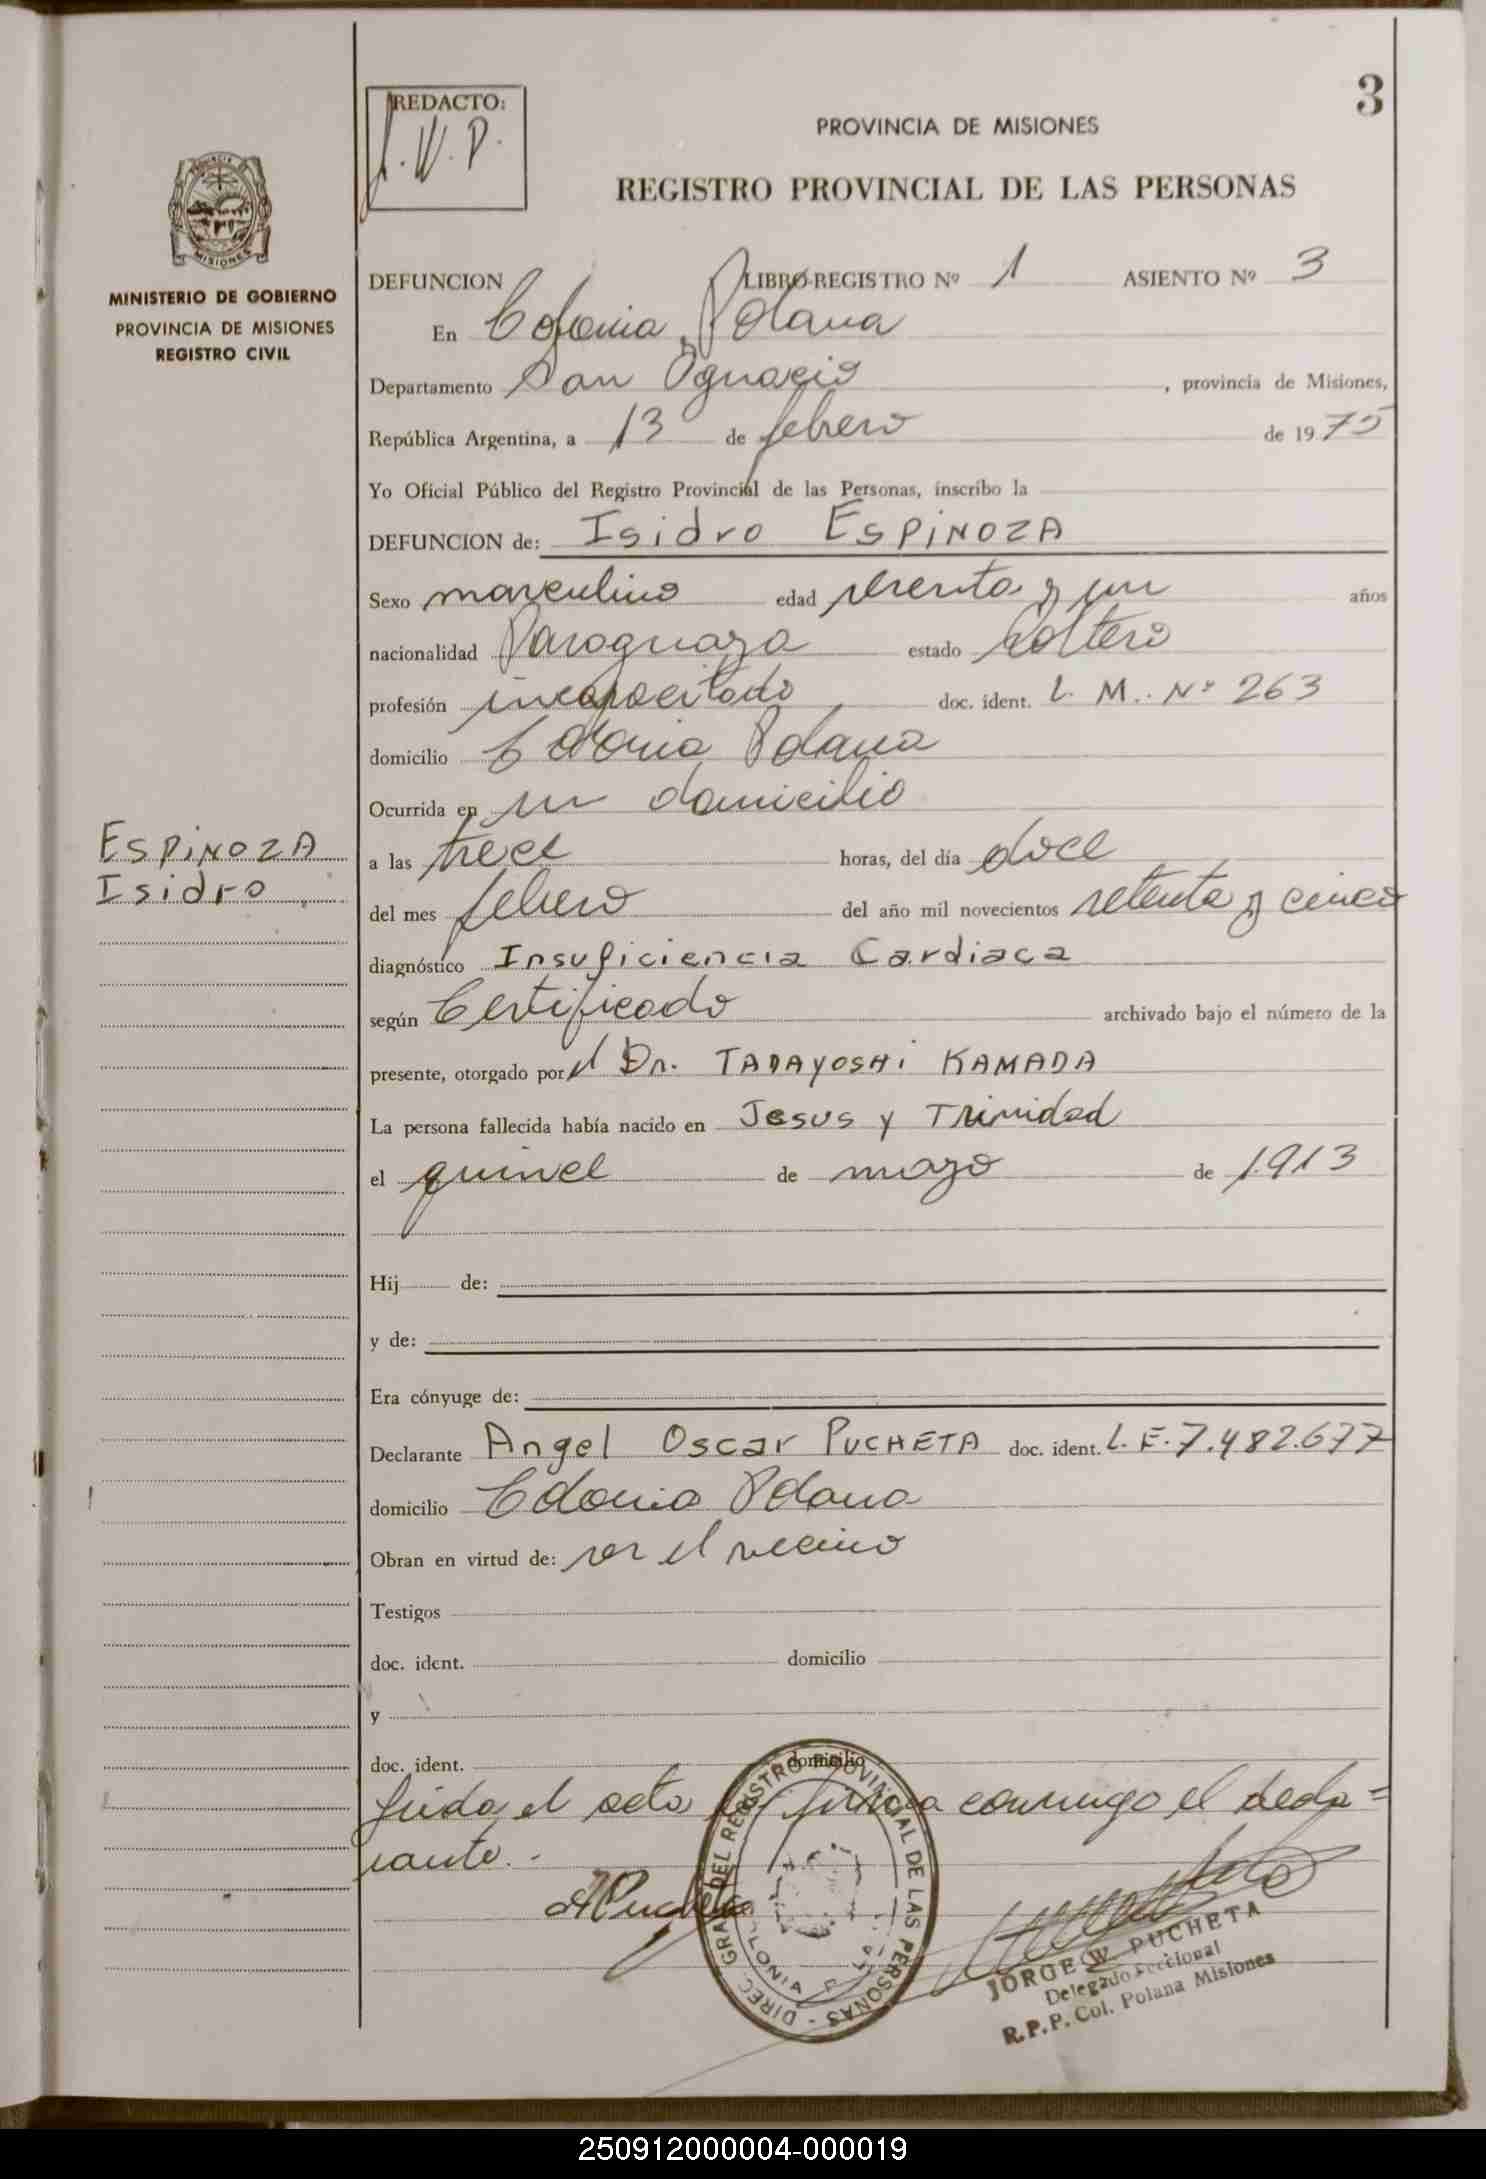 3
REDACTO:
J. W. P.
PROVINCIA DE MISIONES
REGISTRO PROVINCIAL DE LAS PERSONAS
MISIONES
MINISTERIO DE GOBIERNO
PROVINCIA DE MISIONES
REGISTRO CIVIL
DEFUNCION LIBRO-REGISTRO Nº 1 ASIENTO Nº 3
En Colonia Polana
Departamento San Ignacio, provincia de Misiones,
República Argentina, a 13 de febrero de 1975
Yo Oficial Público del Registro Provincial de las Personas, inscribo la
DEFUNCION de: Isidro ESPINOZA
Sexo masculino edad sesenta y un años
nacionalidad Paraguaya estado soltero
profesión incapacitado doc. ident. L. M. Nº 263
domicilio Colonia Polana
Ocurrida en su domicilio
ESPINOZA
Isidro
a las trece horas, del día doce
del mes febrero del año mil novecientos setenta y cinco
diagnóstico Insuficiencia Cardiaca
según Certificado archivado bajo el número de la
presente, otorgado por el Dr. TADAYOSHI KAMADA
La persona fallecida había nacido en Jesus y Trinidad
el quince de mayo de 1913
Hij de:
y de:
Era cónyuge de:
Declarante Angel Oscar PUCHETA doc. ident. L. E. 7.482.677
domicilio Colonia Polana
Obran en virtud de: ser el vecino
Testigos
doc. ident. domicilio
y
doc. ident. domicilio
Leida el acta la firma conmigo el decla=
rante.-
APucheta
DIREC. GRAL. DEL REGISTRO PROVINCIAL DE LAS PERSONAS -
COLONIA POLANA
JORGE W. PUCHETA
Delegado Seccional
R.P.P. Col. Polana Misiones
250912000004-000019